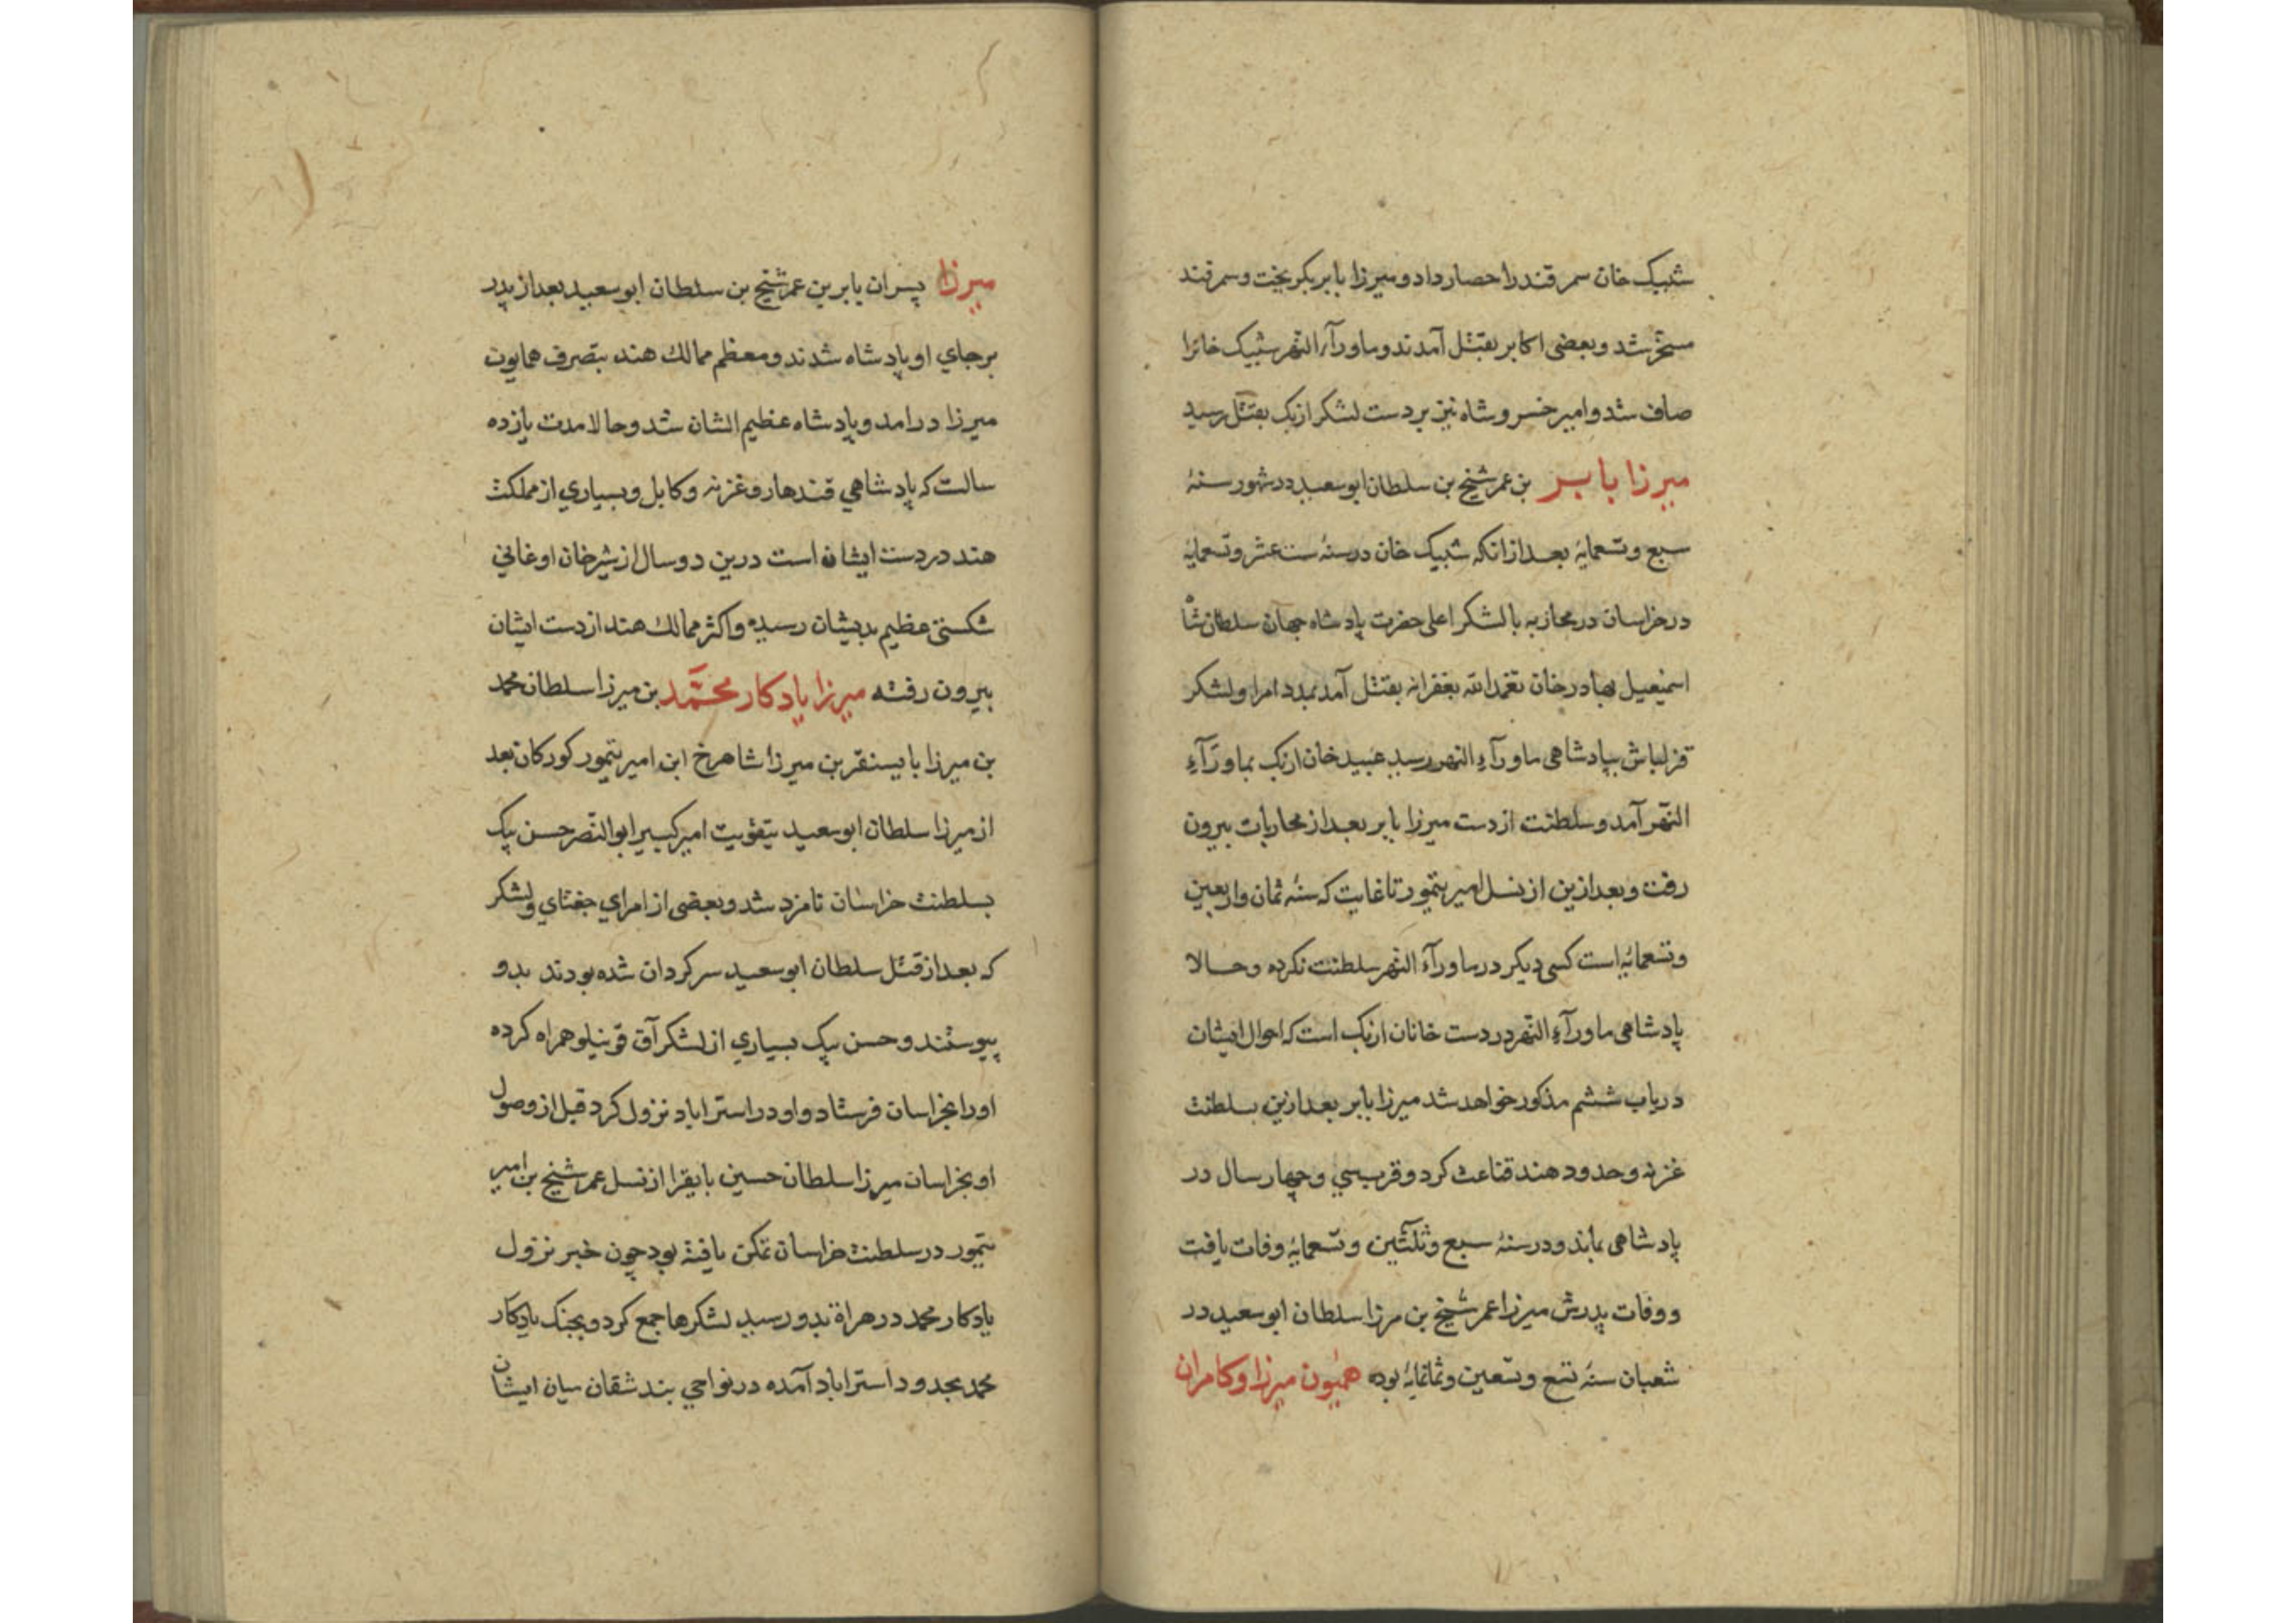 شیبک خان سمرقند را حصار داد و میرزا بابر بگریخت و سمرقند
مسخّر شد و بعضی اکابر بقتل آمدند و ماورآء النهر شیبک خانرا
صاف شد و امیر خسرو شاه نیز بر دست لشکر ازبک بقتل رسید
میرزا بابر بن عمر شیخ بن سلطان ابو سعید در شهور سنهٔ
سبع و تسعمایهٔ بعد از انکه شیبک خان در سنهٔ ست عشر و تسعمایهٔ
در خراسان در محاربه با لشکر اعلی حضرت پادشاه جهان سلطان شاه
اسمعیل بهادر خان تغمدالله بغفرانه بقتل آمد بمدد امرا و لشکر
قزلباش بپادشاهی ماورآءِ النهر رسید عبید خان ازبک بماورآءِ
النّهر آمد و سلطنت از دست میرزا بابر بعد از محاربات بیرون
رفت و بعد ازین از نسل امیر تیمور تا غایت که سنهٔ ثمان و اربعین
و تسعمائهٔ است کسی دیکر در ماورآء النهر سلطنت نکرده و حالا
پادشاهی ماورآءِ النّهر در دست خانان ازبک است که احوال ایشان
در باب ششم مذکور خواهد شد میرزا بابر بعد ازین بسلطنت
غزنه و حدود هند قناعت کرد و قرب سی و چهار سال در
پادشاهی بماند و در سنهٔ سبع و ثلثین و تسعمایهٔ وفات یافت
و وفات پدرش میرزا عمر شیخ بن مرزا سلطان ابو سعید در
شعبان سنهٔ تسع و تسعین و ثمانمایهٔ بوده همیون میرزا و کامران
میرزا پسران بابر بن عمر شیخ بن سلطان ابو سعید بعد از پدر
بر جای او پادشاه شدند و معظم ممالک هند بتصرف همایون
میرزا درامد و پادشاه عظیم الشان شد و حالا مدت یازده
سالست که پادشاهی قندهار و غزنه و کابل و بسیاری از مملکت
هند در دست ایشان است درین دو سال از شیر خان اوغانی
شکستی عظیم بدیشان رسیده و اکثر ممالک هند از دست ایشان
بیرون رفته میرزا یادکار محمّد بن میرزا سلطان محمد
بن میرزا بایسنقر بن میرزا شاهرخ ابن امیر تیمور کورکان بعد
از میرزا سلطان ابو سعید بتقویت امیر کبیر ابو النّصر حسن بیک
بسلطنت خراسان نامزد شد و بعضی از امرای جغتای و لشکر
که بعد از قتل سلطان ابو سعید سرکردان شده بودند بدو
پیوستند و حسن بیک بسیاری از لشکر آق قوینیلو همراه کرده
اورا بخراسان فرستاد و او در استراباد نزول کرد قبل از وصول
او بخراسان میرزا سلطان حسین بایقرا از نسل عمر شیخ بن امیر
تیمور در سلطنت خراسان تمکن یافته بود چون خبر نزول
یادکار محمد در هراة بدو رسید لشکرها جمع کرد و بجنک یادکار
محمد بحدود استراباد آمده در نواحی بند شقان میان ایشان